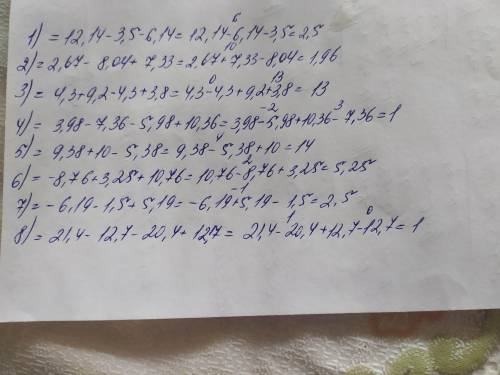 1) = 12,14-3,5-6,14= 12,14-6,14-3,5=2,5
2) = 2,67- 8,04+ 7,33= 2,67+7,33-8,04=1,96
3) = 4,3+9,2-4,3+3,8= 4,3-4,3+9,2+3,8= 13
4) = 3,98-7,36-5,98+10,36=3,98-5,98+10,36-7,36=1
5) = 9,38+10-5,38= 9,38-5,38+10=14
6) = -8,76+3,25+10,76=10,76-8,76+3,25=5,25
7) = -6,19-1,5+5,19= -6,19+5,19-1,5= 2,5
8) = 21,4- 12,7- 20,4+ 12,7= 21,4-20,4+12,7-12,7= 1